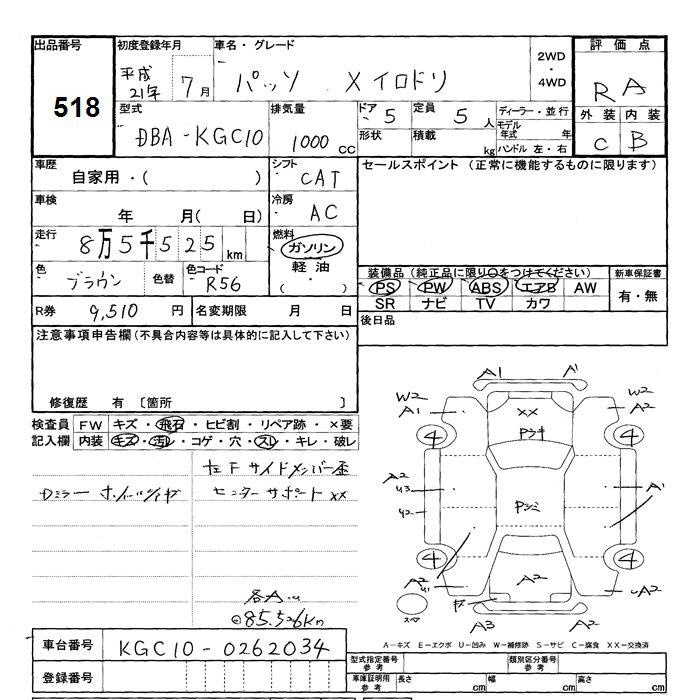 出品番号 初度登録年月 車名・グレード 2WD 評価点
518 平成21年 7月 パッソ Xイロドリ ・4WD RA
型式 排気量 ドア 定員 ディーラー・並行 外装 内装
DBA-KGC10 1000cc 5 5人 モデル年式 年 C B
形状 積載 kg ハンドル 左・右
車歴 自家用・( ) シフト CAT セールスポイント (正常に機能するものに限ります)
車検 年 月( 日) 冷房 AC
走行 8万5千525km 燃料 ガソリン
軽油 ・( )
色 ブラウン 色替 色コード R56 装備品(純正品に限り○をつけてください) 新車保証書
PS PW ABS エアB AW 有・無
SR ナビ TV カワ
R券 9,510円 名変期限 月 日 後日品
注意事項申告欄(不具合内容等は具体的に記入して下さい)
修復歴 有 〔箇所 〕
検査員記入欄 FW キズ・飛石・ヒビ割・リペア跡・×要
内装 キズ・汚レ・コゲ・穴・スレ・キレ・破レ
左Fサイドメンバー歪
センターサポートXX
各A.u
85.526Km
A1 A1
W2 A1 XX W2 A2
4 4
A2 A1
A2 A2 uA2
4 4
A3 A2
A-キズ E-エクボ U-凹み W-補修跡 S-サビ C-腐食 XX-交換済
車台番号 KGC10-0262034
登録番号
型式指定番号 参考 類別区分番号 参考
車庫証明用 参考 長さ cm 幅 cm 高さ cm